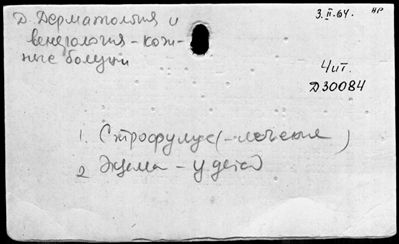 Д Дерматология и
венерология - кож-
ные болезни
3.II.64. НР
Чит.
Д30084
1. Строфулус (-лечение)
2 Экзема - у детей